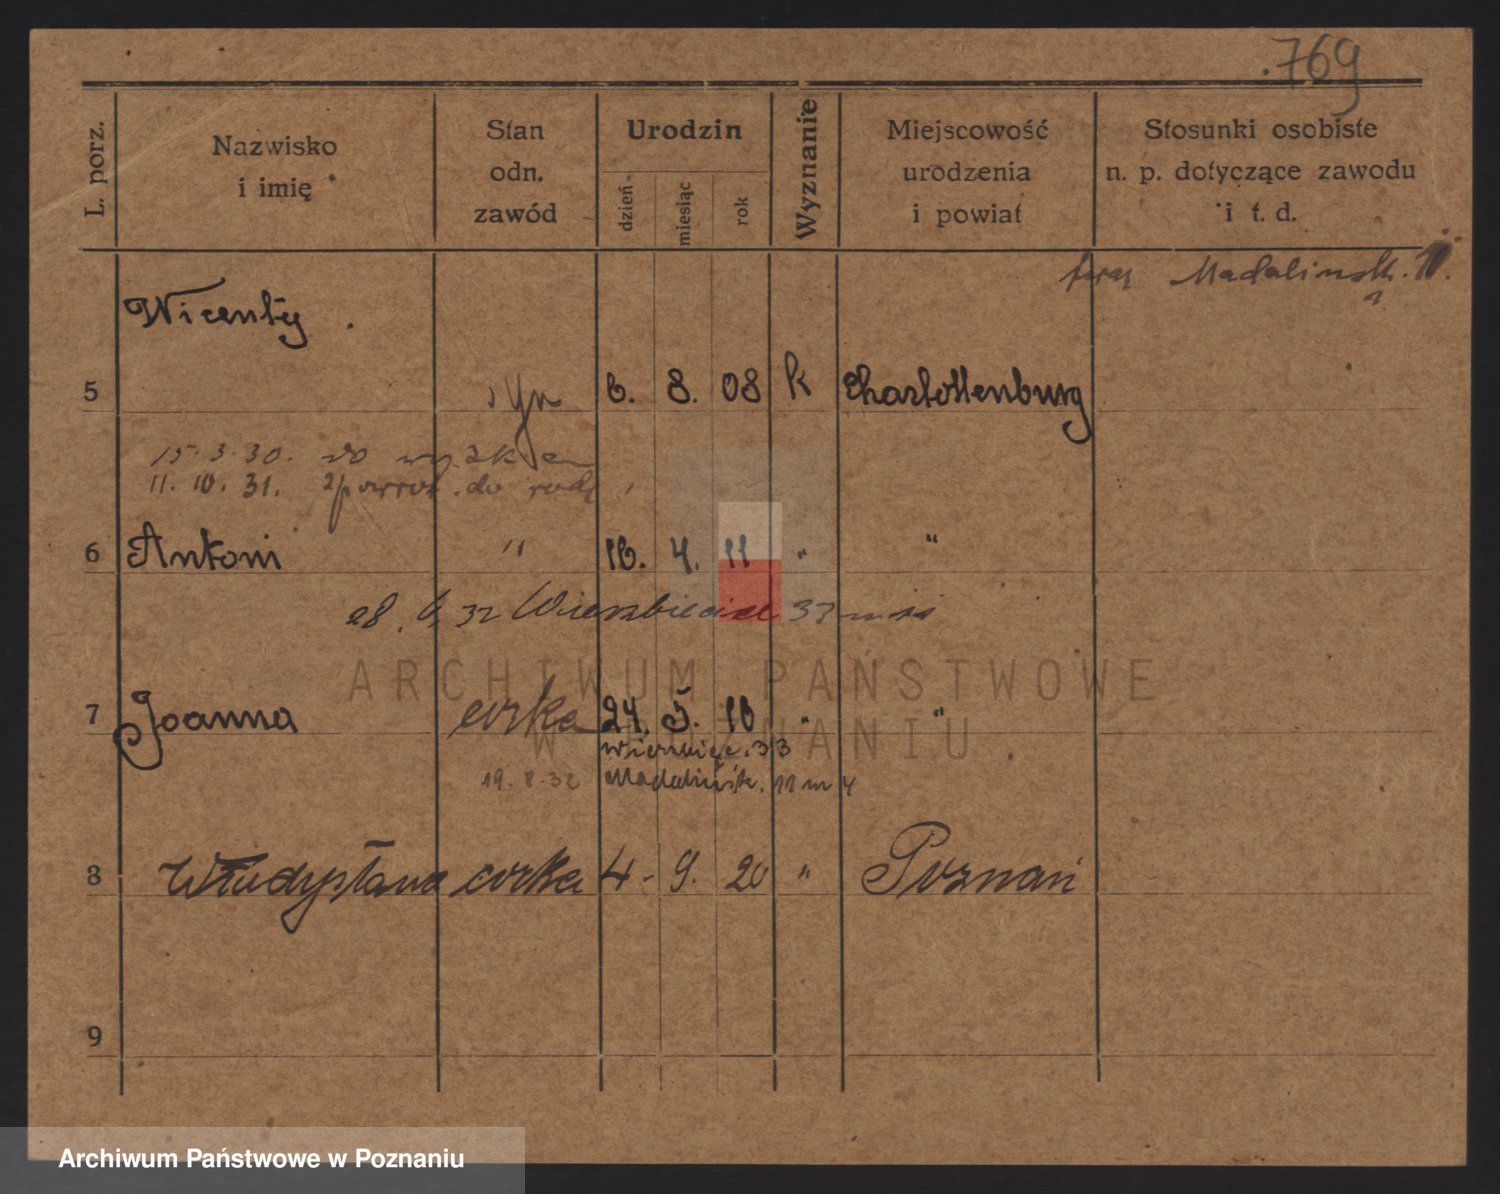 .769
L. porz.
Nazwisko
i imię
Stan
odn.
zawód
Urodzin
dzień
miesiąc
rok
Wyznanie
Miejscowość
urodzenia
i powiat
Stosunki osobiste
n. p. dotyczące zawodu
i t. d.
Madalinsk. 11.
Wicenty
5 syn 6. 8. 08 k Charlottenburg
15. 3. 30. do
11. 10. 31. do rodz
6 Antoni " 16. 4. 11 " "
28. 6. 32 33 m 11
ARCHIWUM PAŃSTWOWE
W POZNANIU
7 Joanna corka 24. 5. 16 " "
Wierzbięc. 33
19. 8. 32 Madalińsk. 11 m 4
8 Władysława corka 4. 9. 20 " Poznań
9
Archiwum Państwowe w Poznaniu